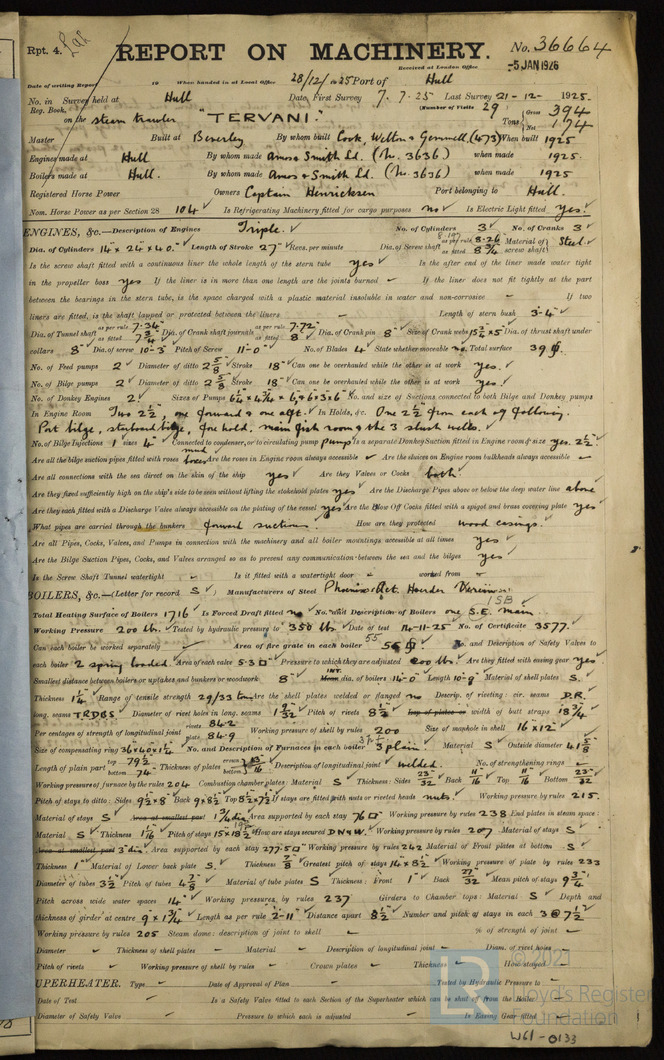 Rpt. 4. REPORT ON MACHINERY. No. 36664
Received at London Office -5 JAN 1926
Date of writing Report 19 When handed in at Local Office 28/12/1925 Port of Hull
No. in Survey held at Hull Date, First Survey 7.7.25 Last Survey 21-12-1925
Reg. Book. (Number of Visits 29)
on the steam trawler "TERVANI." Tons Gross 394 Net 174
Master Built at Beverley By whom built Cook, Welton & Gemmell (473) When built 1925
Engines made at Hull By whom made Amos & Smith Ld. (No. 3636) when made 1925.
Boilers made at Hull. By whom made Amos & Smith Ld. (No. 3636) when made 1925
Registered Horse Power Owners Captain Henricksen Port belonging to Hull.
Nom. Horse Power as per Section 28 104 Is Refrigerating Machinery fitted for cargo purposes no Is Electric Light fitted yes.
ENGINES, &c.—Description of Engines Triple. No. of Cylinders 3 No. of Cranks 3
Dia. of Cylinders 14" x 24" x 40" Length of Stroke 27" Revs. per minute Dia. of Screw shaft as per rule 8.26 as fitted 8 3/4 Material of screw shaft Steel.
Is the screw shaft fitted with a continuous liner the whole length of the stern tube yes Is the after end of the liner made water tight
in the propeller boss yes If the liner is in more than one length are the joints burned - If the liner does not fit tightly at the part
between the bearings in the stern tube, is the space charged with a plastic material insoluble in water and non-corrosive - If two
liners are fitted, is the shaft lapped or protected between the liners - Length of stern bush 3'-4"
Dia. of Tunnel shaft as per rule 7.34 as fitted 7 3/4 Dia. of Crank shaft journals as per rule 7.72 as fitted 8 Dia. of Crank pin 8" Size of Crank webs 15 3/4 x 5 Dia. of thrust shaft under
collars 8" Dia. of screw 10'-3" Pitch of Screw 11'-0" No. of Blades 4 State whether moveable no. Total surface 39
No. of Feed pumps 2 Diameter of ditto 2 5/8 Stroke 18" Can one be overhauled while the other is at work yes.
No. of Bilge pumps 2 Diameter of ditto 2 5/8 Stroke 18" Can one be overhauled while the other is at work yes
No. of Donkey Engines 2 Sizes of Pumps No. and size of Suctions connected to both Bilge and Donkey pumps
In Engine Room Two 2 1/2, one forward & one aft. In Holds, &c. One 2 1/2 from each of following.
Port bilge, starboard bilge, fore hold, main fish room & the 3 slush wells.
No. of Bilge Injections 1 sizes 4" Connected to condenser, or to circulating pump pump Is a separate Donkey Suction fitted in Engine room & size yes. 2 1/2"
Are all the bilge suction pipes fitted with roses mud boxes Are the roses in Engine room always accessible Are the sluices on Engine room bulkheads always accessible -
Are all connections with the sea direct on the skin of the ship yes Are they Valves or Cocks both
Are they fixed sufficiently high on the ship's side to be seen without lifting the stokehold plates yes Are the Discharge Pipes above or below the deep water line above
Are they each fitted with a Discharge Valve always accessible on the plating of the vessel yes Are the Blow Off Cocks fitted with a spigot and brass covering plate yes
What pipes are carried through the bunkers forward suctions How are they protected wood casings.
Are all Pipes, Cocks, Valves, and Pumps in connection with the machinery and all boiler mountings accessible at all times yes
Are the Bilge Suction Pipes, Cocks, and Valves arranged so as to prevent any communication between the sea and the bilges yes
Is the Screw Shaft Tunnel watertight - Is it fitted with a watertight door - worked from -
BOILERS, &c.—(Letter for record S) Manufacturers of Steel
Total Heating Surface of Boilers 1716 Is Forced Draft fitted no No. and Description of Boilers one S.E. main
Working Pressure 200 lbs. Tested by hydraulic pressure to 350 lbs Date of test 14-11-25 No. of Certificate 3577.
Can each boiler be worked separately - Area of fire grate in each boiler 55 No. and Description of Safety Valves to
each boiler 2 spring loaded. Area of each valve 5.3 Pressure to which they are adjusted 200 lbs. Are they fitted with easing gear yes
Smallest distance between boilers or uptakes and bunkers or woodwork 8" INT. dia. of boilers 14'-0" Length 10'-9" Material of shell plates S.
Thickness 1 1/4 Range of tensile strength 29/33 tons Are the shell plates welded or flanged no Descrip. of riveting: cir. seams D.R.
long. seams T.R.D.B.S. Diameter of rivet holes in long. seams 1 9/32 Pitch of rivets 8 1/2 width of butt straps 18 3/4
Per centages of strength of longitudinal joint rivets 84.2 plate 84.9 Working pressure of shell by rules 200 Size of manhole in shell 16" x 12"
Size of compensating ring 36 x 40 x 1 1/4 No. and Description of Furnaces in each boiler 3 plain Material S Outside diameter 41 5/8
Length of plain part top 79 1/2 bottom 74 Thickness of plates crown bottom 13/16 Description of longitudinal joint welded. No. of strengthening rings -
Working pressure of furnace by the rules 204 Combustion chamber plates: Material S Thickness: Sides 23/32 Back 11/16 Top 11/16 Bottom 23/32
Pitch of stays to ditto: Sides 9 1/2 x 8 Back 9 x 8 1/2 Top 8 1/2 x 7 1/2 If stays are fitted with nuts or riveted heads nuts. Working pressure by rules 215.
Material of stays S Area at smallest part 1 3/4 dia Area supported by each stay 76 Working pressure by rules 238 End plates in steam space:
Material S Thickness 1 1/16 Pitch of stays 15 x 18 1/2 How are stays secured D.N & W. Working pressure by rules 207 Material of stays S
Area at smallest part 3" dia Area supported by each stay 277.5 Working pressure by rules 242 Material of Front plates at bottom S
Thickness 1" Material of Lower back plate S. Thickness 7/8 Greatest pitch of stays 14 x 8 1/2 Working pressure of plate by rules 233
Diameter of tubes 3 1/2 Pitch of tubes 4 7/8 Material of tube plates S Thickness: Front 1" Back 27/32 Mean pitch of stays 9 3/4
Pitch across wide water spaces 14" Working pressures by rules 237 Girders to Chamber tops: Material S Depth and
thickness of girder at centre 9 x 1 3/4 Length as per rule 2'-11" Distance apart 8 1/2 Number and pitch of stays in each 3 @ 7 1/2
Working pressure by rules 205 Steam dome: description of joint to shell - % of strength of joint -
Diameter - Thickness of shell plates - Material - Description of longitudinal joint - Diam. of rivet holes -
Pitch of rivets - Working pressure of shell by rules - Crown plates - Thickness - How stayed -
UPERHEATER. Type - Date of Approval of Plan - Tested by Hydraulic Pressure to -
Date of Test - Is a Safety Valve fitted to each Section of the Superheater which can be shut off from the Boiler
Diameter of Safety Valve - Pressure to which each is adjusted - Is Easing Gear fitted
© 2021
Lloyd's Register
Foundation
W61-0133